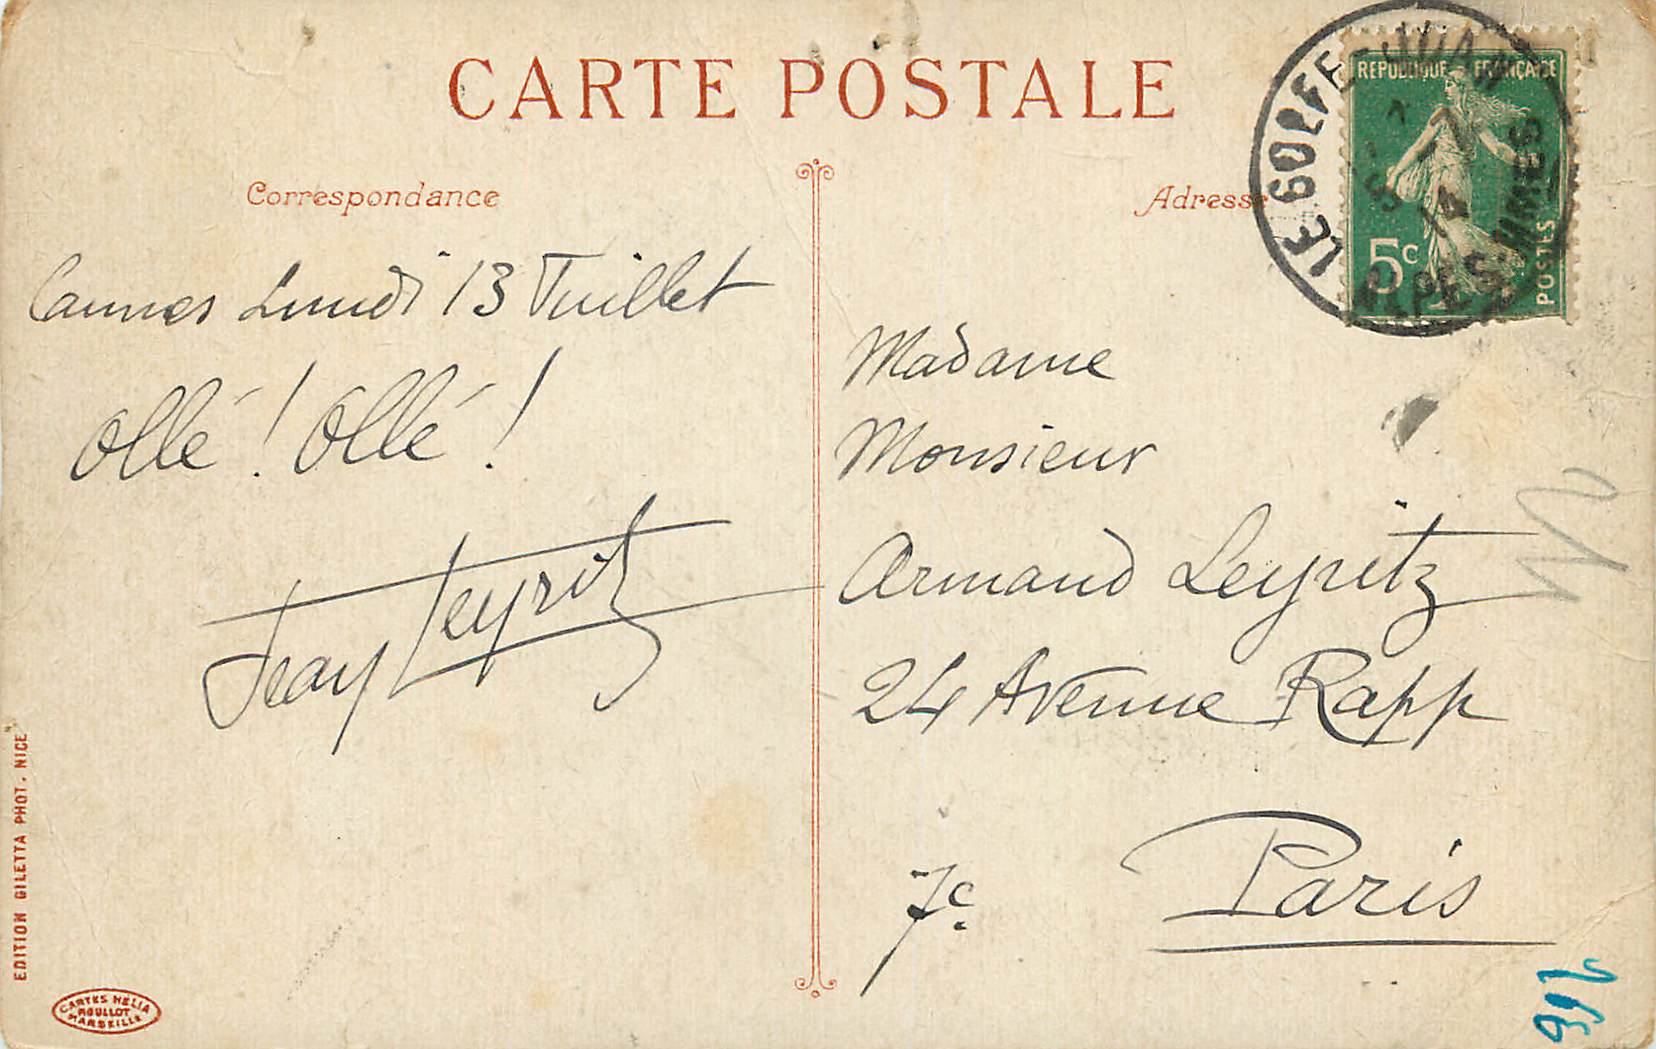 CARTE POSTALE
Correspondance
Adresse
Cannes Lundi 13 Juillet
Ollé ! Ollé !
Jean Leyritz
Madame
Monsieur
Armand Leyritz
24 Avenue Rapp
7e
Paris
REPUBLIQUE FRANÇAISE
5c
POSTES
LE GOLFE-JUAN
14
ALPES MMES
EDITION GILETTA PHOT. NICE
CARTES HELIA
ROULLOT
MARSEILLE